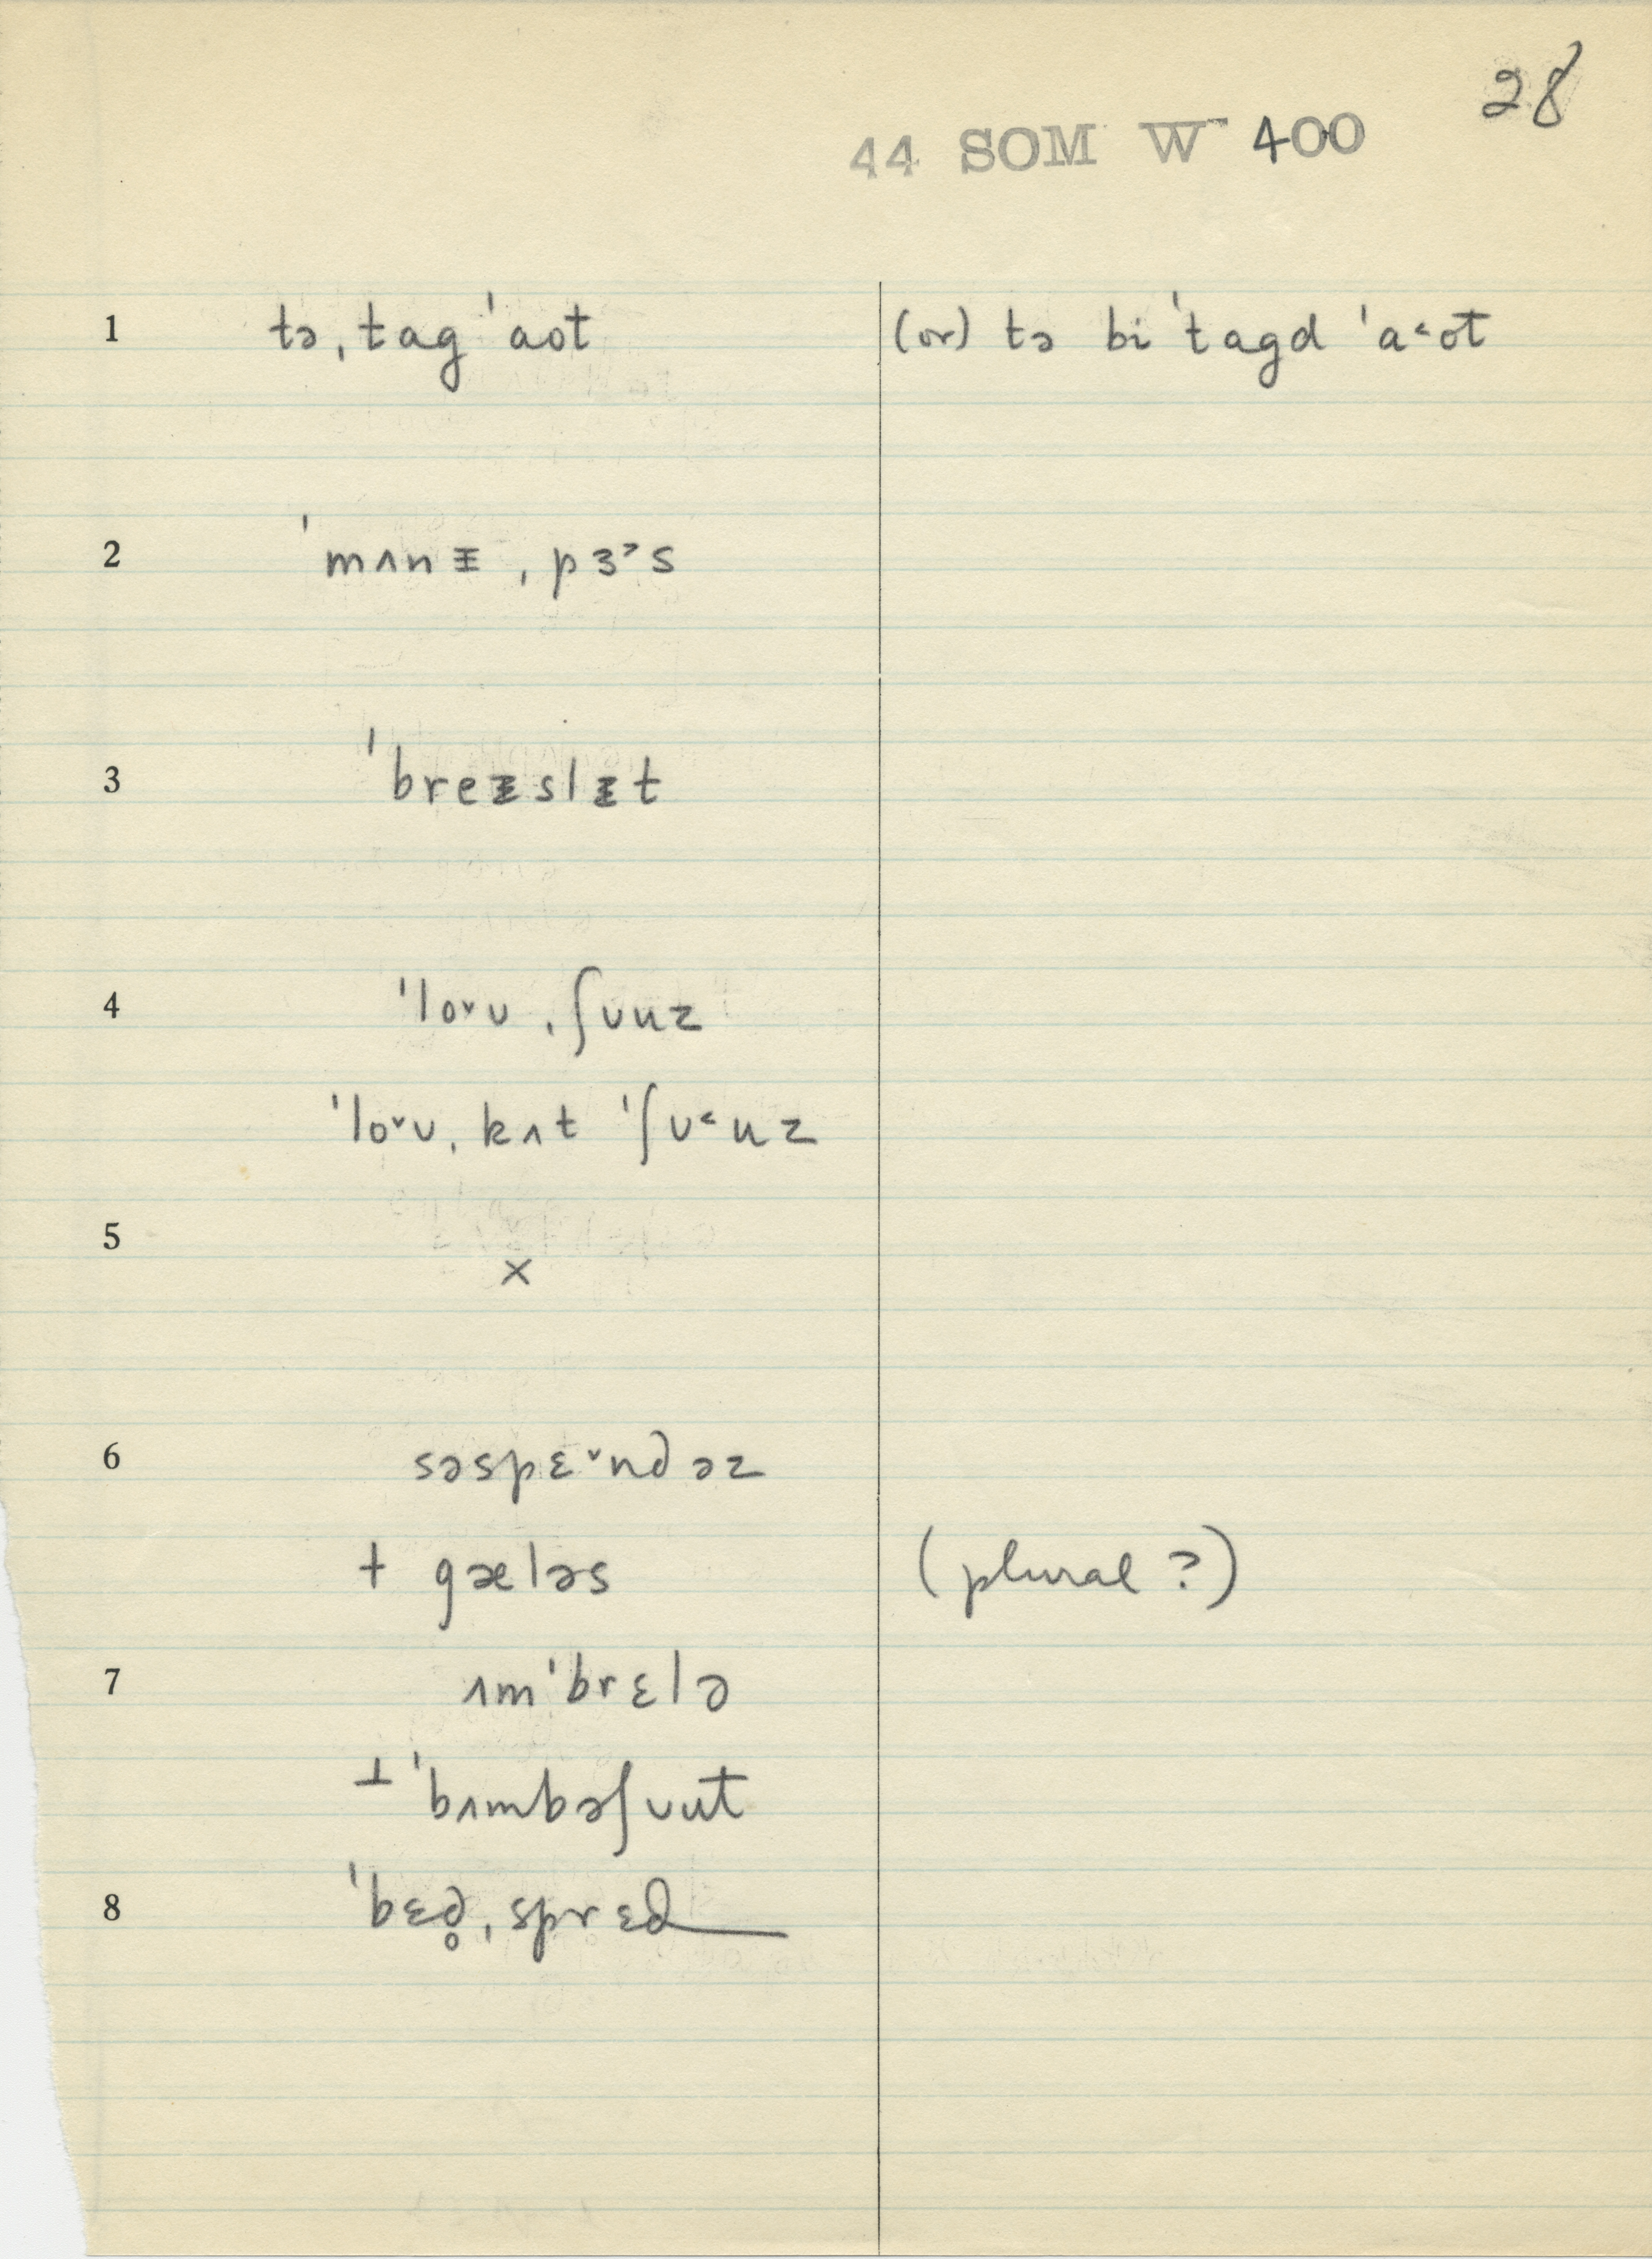 28
44 SOM W 400
1 tə ˌtag ˈaot (or) tə bi ˈtagd ˈa˂ot
2 ˈmʌnɪ̵ ˌpɜ˃s
3 ˈbreɪ̵slɪ̵t
4 ˈlo˅ʊ ˌʃʊuz
ˈlo˅ʊ ˌkʌt ˈʃʊ˂uz
5 ×
6 səspɛ˅ndəz
+ gæləs (plural ?)
7 ʌmˈbrɛlə
⊥ ˈbʌmbəʃʊut
8 ˈbɛd̥ ˌsprɛd